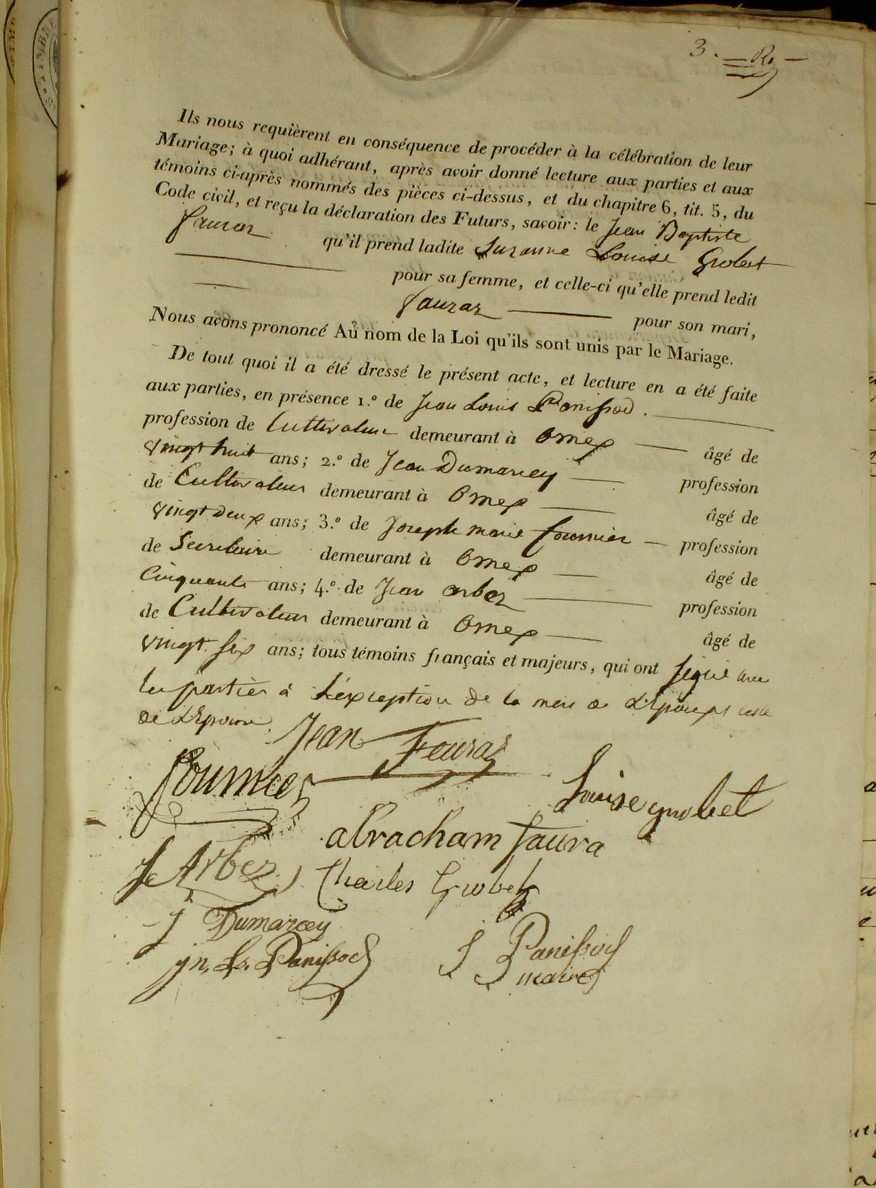 3. R.
Ils nous requièrent en conséquence de procéder à la célébration de leur
Mariage; à quoi adhérant, après avoir donné lecture aux parties et aux
témoins ci-après nommés des pièces ci-dessus, et du chapitre 6, tit. 5, du
Code civil, et reçu la déclaration des Futurs, savoir: le Jean Baptiste
fauraz qu'il prend ladite Suzanne Louise Grobet
pour sa femme, et celle-ci qu'elle prend ledit
fauraz pour son mari,
Nous avons prononcé Au nom de la Loi qu'ils sont unis par le Mariage.
De tout quoi il a été dressé le présent acte, et lecture en a été faite
aux parties, en présence 1.º de Jean Louis Panissod.
profession de Cultivateur demeurant à Ornex âgé de
vingt huit ans; 2.º de Jean Dumarcey profession
de Cultivateur demeurant à Ornex âgé de
vingt deux ans; 3.º de Joseph marie fournier profession
de Secretaire demeurant à Ornex âgé de
Cinquante ans; 4.º de Jean arbez profession
de Cultivateur demeurant à Ornex âgé de
vingt six ans; tous témoins français et majeurs, qui ont signé avec
les parties à l'exception de la mere de l'Epoux et celle
de l'Epouse
Jean Fauraz
fournier
Louise grobet
abracham faura
J Arbez
Charles Grobet
J Dumarcey
jn. Ls. Panissod
J Panissod
maire